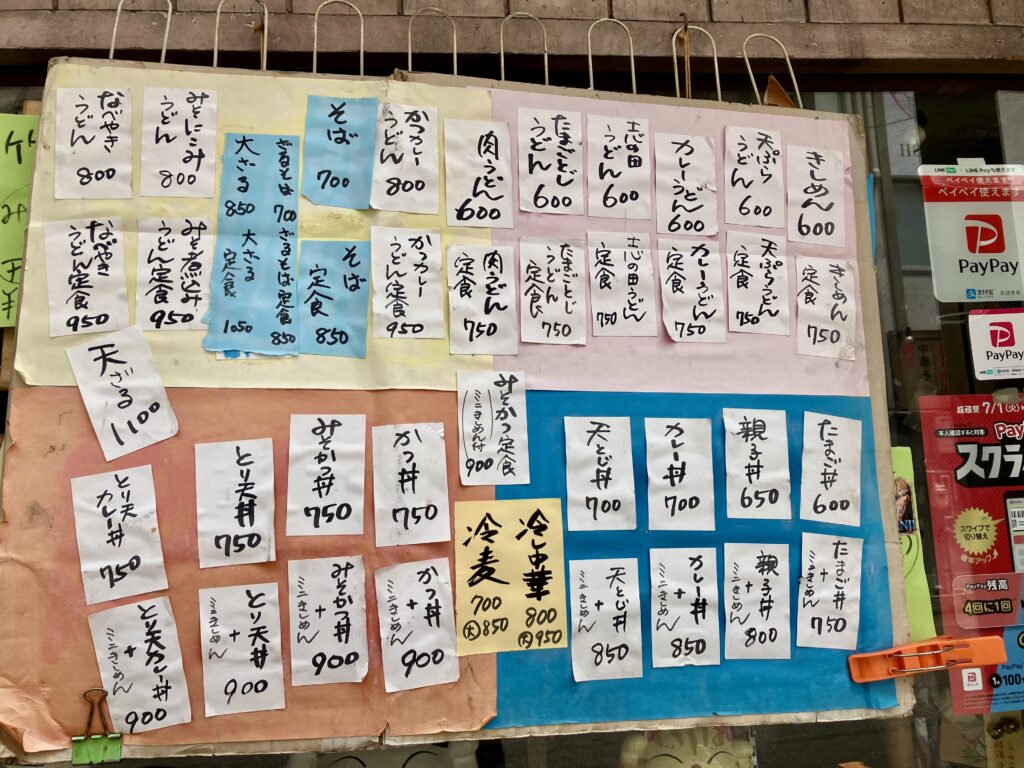 きしめん
600
天ぷら
うどん
600
カレーうどん
600
志の田
うどん
600
たまごとじ
うどん
600
肉うどん
600
かつカレー
うどん
800
そば
700
ざるそば 700 ざるそば定食 850
大ざる 850 大ざる定食 1050
みそにこみ
うどん
800
なべやき
うどん
800
きしめん
定食
750
天ぷらうどん
定食
750
カレーうどん
定食
750
志の田うどん
定食
750
たまごとじ
うどん
定食
750
肉うどん
定食
750
かつカレー
うどん定食
950
そば
定食
850
みそ煮込み
うどん定食
950
なべやき
うどん定食
950
天ざる
1100
みそかつ定食
(ミニきしめん付)
900
たまご丼
600
親子丼
650
カレー丼
700
天とじ丼
700
かつ丼
750
みそかつ丼
750
とり天丼
750
とり天
カレー丼
750
冷し中華
800
大 950
冷麦
700
大 850
たまご丼
+
ミニきしめん
750
親子丼
+
ミニきしめん
800
カレー丼
+
ミニきしめん
850
天とじ丼
+
ミニきしめん
850
かつ丼
+
ミニきしめん
900
みそかつ丼
+
ミニきしめん
900
とり天丼
+
ミニきしめん
900
とり天カレー丼
+
ミニきしめん
900
LINE Pay LINE Payも使えます
ペイペイ使えます
ペイペイ使えます
PayPay
支付宝
PayPay
超PayPay祭 7/1
本人確認すると対象
スクラ
スワイプで
切り替え
PayPay残高
4回に1回
PayPay